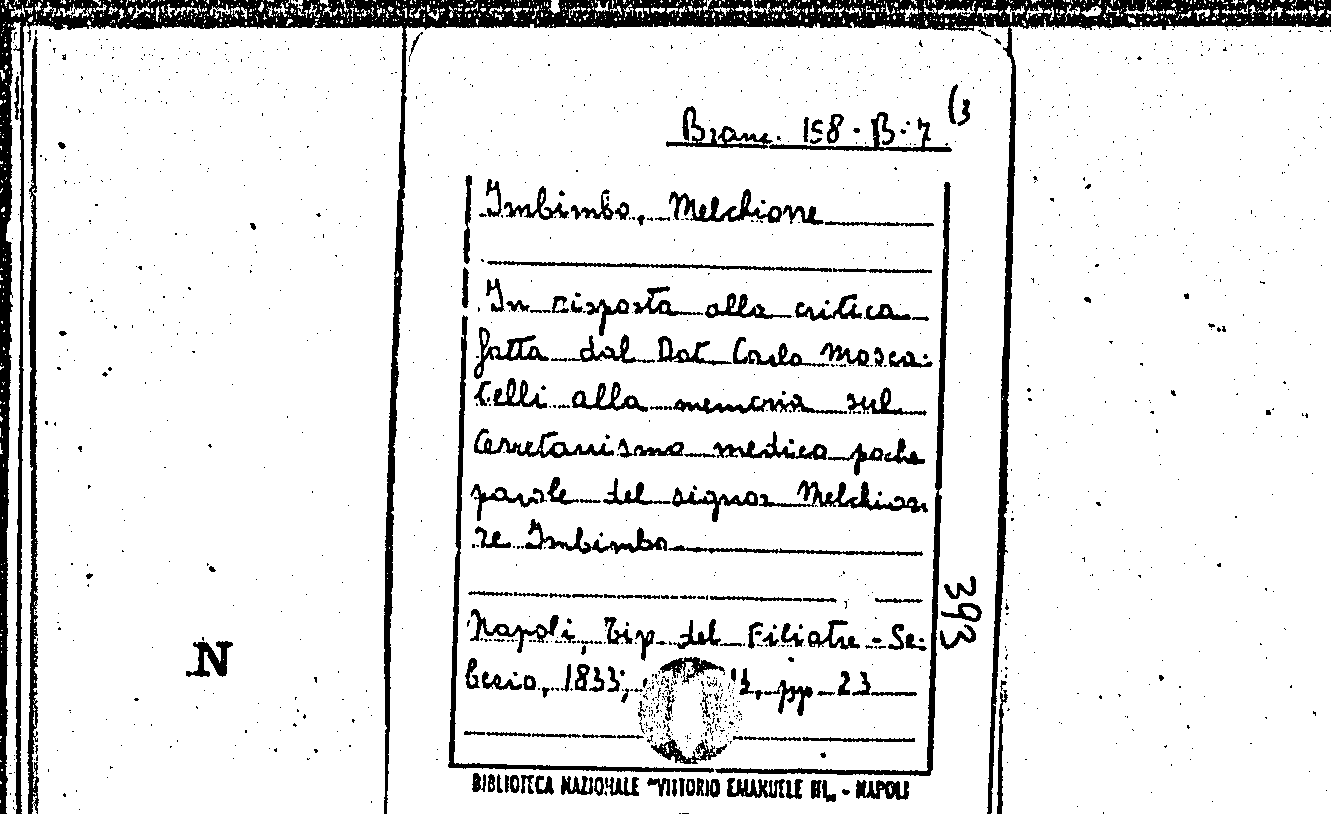 Branc. 158 - B - 7 (3
Imbimbo, Melchione
In risposta alla critica
fatta dal Dot Carlo Mosca-
telli alla memoria sul
Cerretanismo medico poche
parole del signor Melchior-
re Imbimbo
Napoli, Tip. del Filiatre-Se-
bezio, 1833; pp 23
393
N
BIBLIOTECA NAZIONALE "VITTORIO EMANUELE III„ - NAPOLI